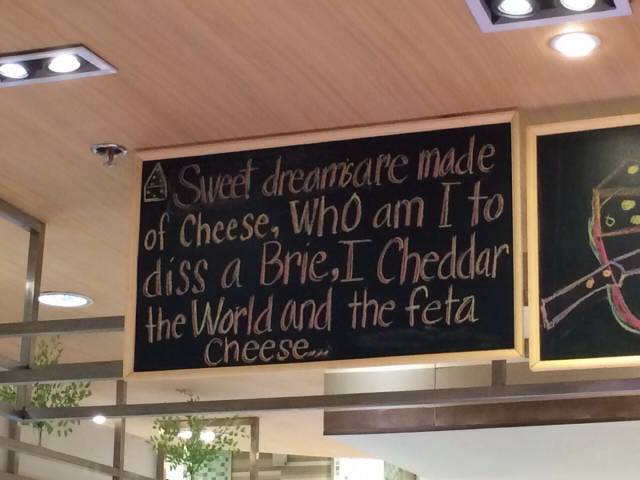 Sweet dreams are made
of Cheese, Who am I to
diss a Brie, I Cheddar
the World and the feta
Cheese...